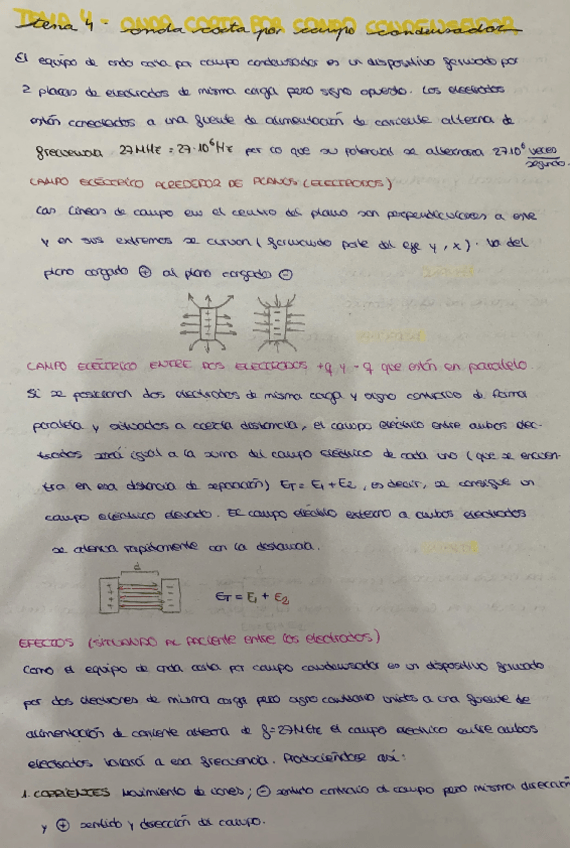 TEMA 4 - ONDA CORTA POR CAMPO CONDENSADOR
tema 4 - onda corta por campo condensador
El equipo de onda corta por campo condensador es un dispositivo formado por
2 placas de electrodos de misma carga pero signo opuesto. Los electrodos
están conectados a una fuente de alimentación de corriente alterna de
frecuencia 27MHz = 27·10⁶Hz por lo que su potencial se alternará 27·10⁶ veces
segundo.
CAMPO ELÉCTRICO ALREDEDOR DE PLANOS (ELECTRODOS)
Las líneas de campo en el centro del plano son perpendiculares a este
y en sus extremos se curvan (formando parte del eje y, x). Va del
plano cargado ⊕ al plano cargado ⊖
CAMPO ELÉCTRICO ENTRE DOS ELECTRODOS +q y -q que están en paralelo
Si se posicionan dos electrodos de misma carga y signo contrario de forma
paralela y situados a cierta distancia, el campo eléctrico entre ambos elec-
trodos será igual a la suma del campo eléctrico de cada uno (que se encuen-
tra en esa distancia de separación) ET = E1 + E2, es decir, se consigue un
campo eléctrico elevado. El campo eléctrico externo a ambos electrodos
se atenúa rápidamente con la distancia.
d
ET = E1 + E2
EFECTOS (SITUANDO AL PACIENTE entre los electrodos)
Como el equipo de onda corta por campo condensador es un dispositivo formado
por dos electrones de misma carga pero signo contrario unidos a una fuente de
alimentación de corriente alterna de f=27MHz el campo eléctrico entre ambos
electrodos variará a esa frecuencia. Produciéndose así:
1. CORRIENTES Movimiento de iones; ⊖ sentido contrario al campo pero misma dirección
y ⊕ sentido y dirección del campo.